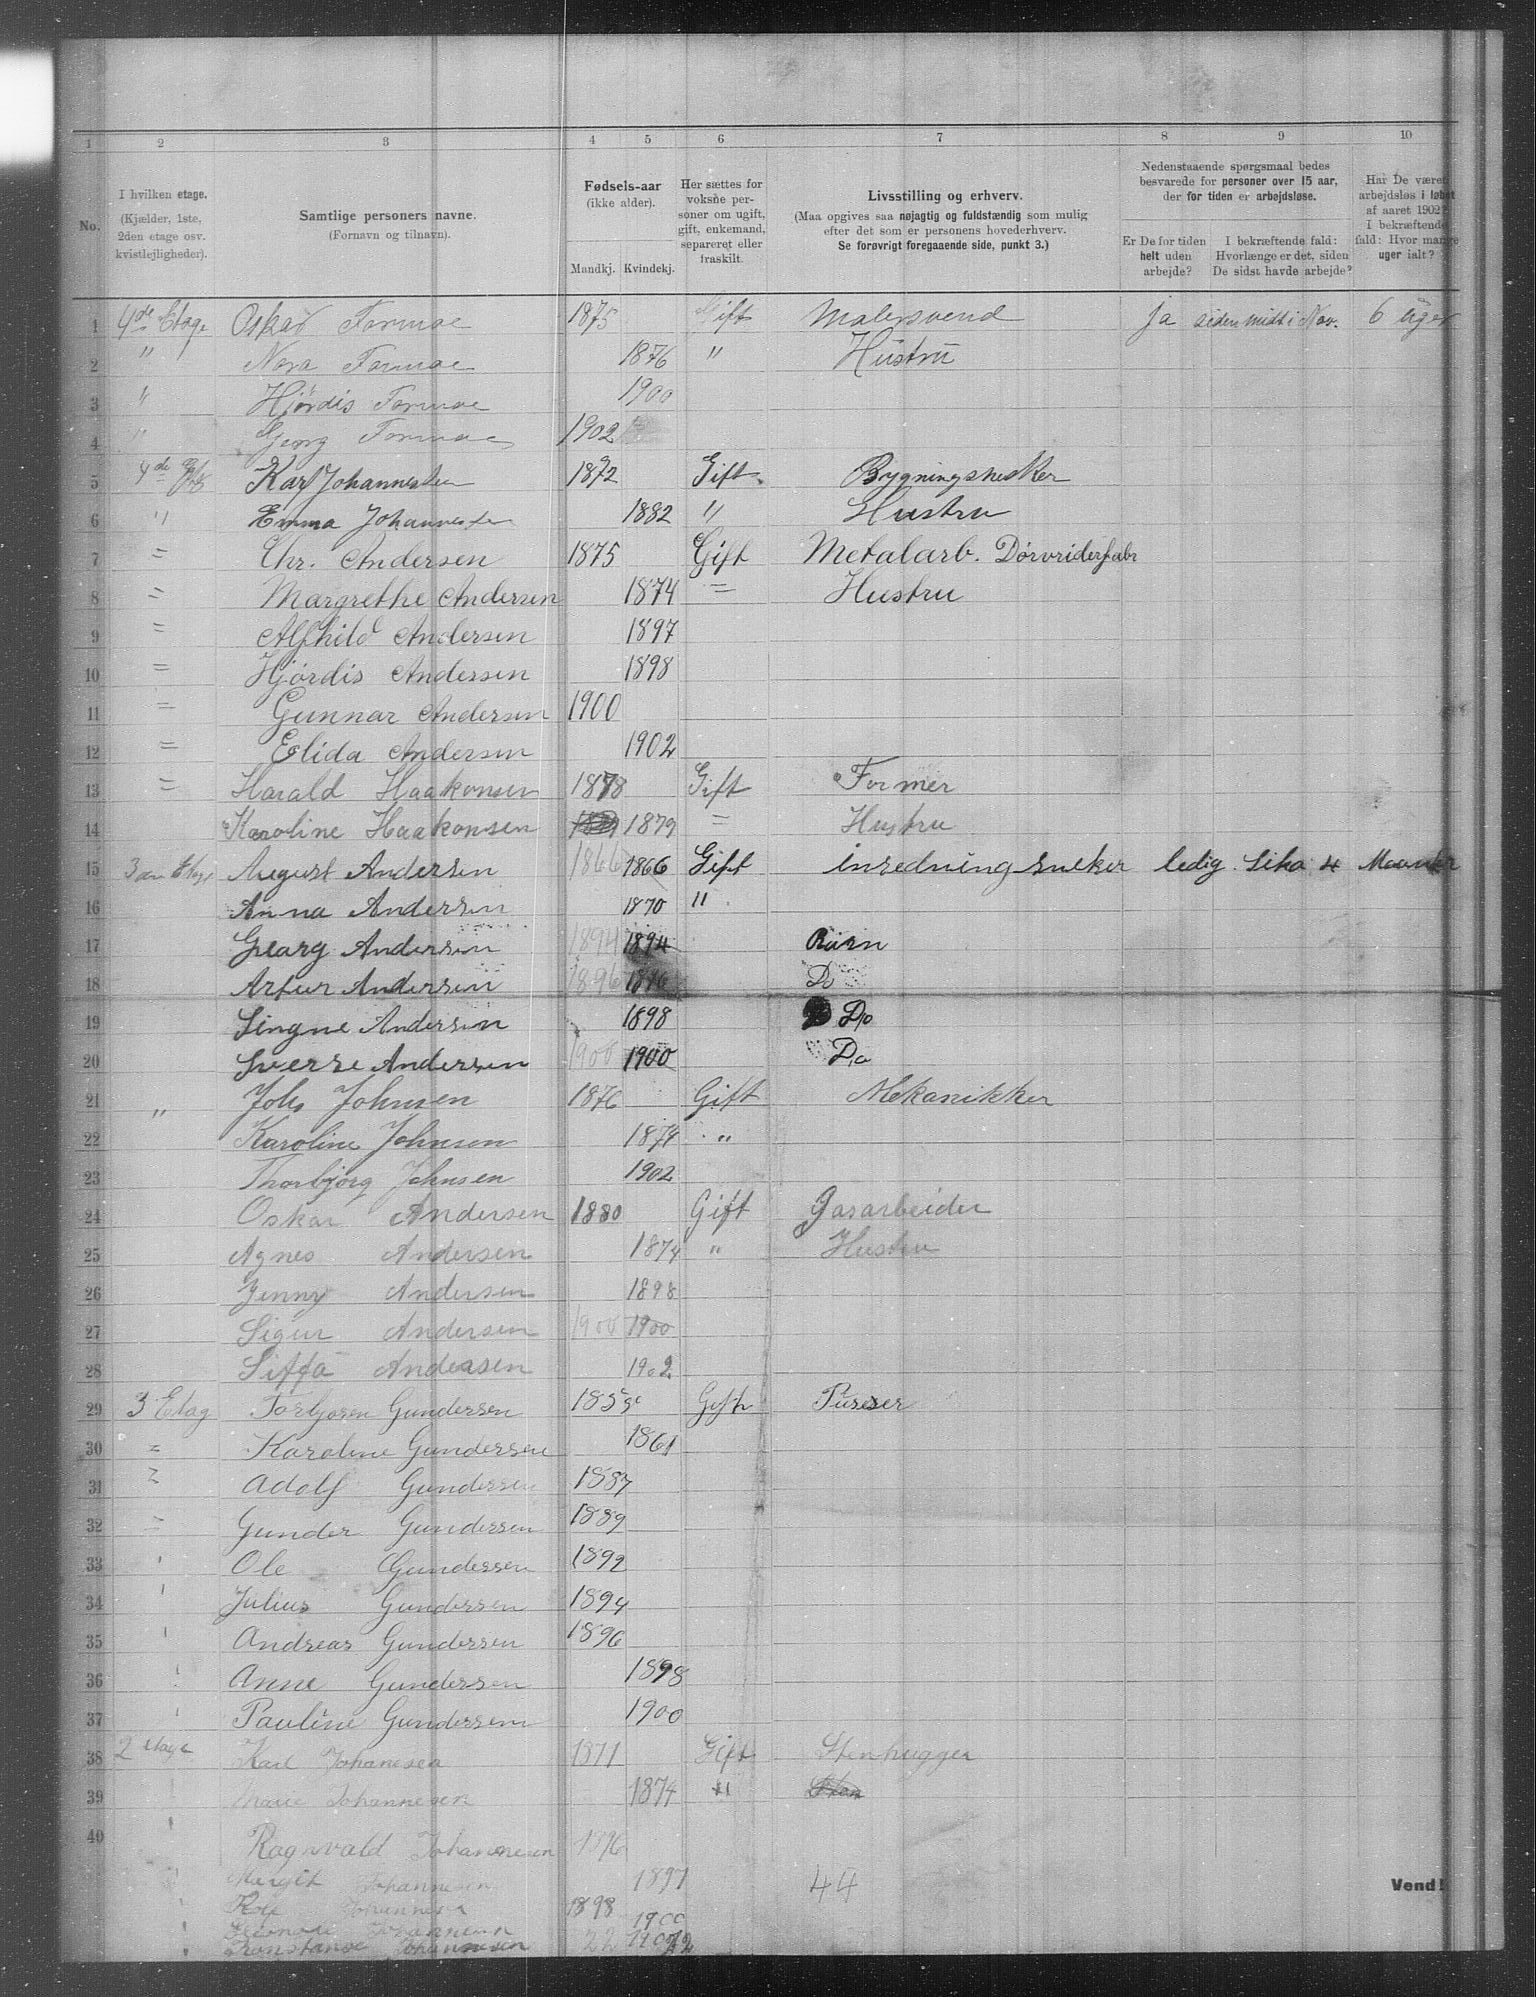 1 2 3 4 5 6 7 8 9 10
No.
I hvilken etage.
(Kjælder, 1ste,
2den etage osv.
kvistlejligheder).
Samtlige personers navne.
(Fornavn og tilnavn).
Fødsels-aar
(ikke alder).
Mandkj. Kvindekj.
Her sættes for
voksne per-
soner om ugift,
gift, enkemand,
separeret eller
fraskilt.
Livsstilling og erhverv.
(Maa opgives saa nøjagtig og fuldstændig som mulig
efter det som er personens hovederhverv.
Se forøvrigt foregaaende side, punkt 3.)
Nedenstaaende spørgsmaal bedes
besvarede for personer over 15 aar,
der for tiden er arbejdsløse.
Er De for tiden
helt uden
arbejde?
I bekræftende fald:
Hvorlænge er det, siden
De sidst havde arbejde?
Har De været
arbejdsløs i løbet
af aaret 1902?
I bekræftende
fald: Hvor mange
uger ialt?
1 4de Etage Oskar Formoe 1875 Gift Malersvend Ja siden midt i Nov. 6 uger
2 " Nora Formoe 1876 " Hustru
3 " Hjördis Formoe 1900
4 " Georg Formoe 1902
5 4de Karl Johannessen 1872 Gift
6 " Emma Johannessen 1882 " Hustru
7 = Chr. Andersen 1875 Gift Metalarb. Dørvriderfabr
8 = Margrethe Andersen 1874 = Hustru
9 = Alfhild Andersen 1897
10 = Hjördis Andersen 1898
11 = Gunnar Andersen 1900
12 = Elida Andersen 1902
13 = Harald Haakonsen 1878 Gift Former
14 Karoline Haakonsen 1879 = Hustru
15 3die Etage August Andersen 1866 1866 Gift insedning snekker ledig. Sika 4 Maaneder
16 Anna Andersen 1870 "
17 Georg Andersen 1894 1894 Barn
18 Artur Andersen 1896 1896 Do
19 Singne Andersen 1898 Do
20 Sverre Andersen 1900 1900 Do
21 " Johs Johnsen 1876 Gift Mekanikker
22 Karoline Johnsen 1874 "
23 Thorbjørg Johnsen 1902
24 Oskar Andersen 1880 Gift Gasarbeider
25 Agnes Andersen 1874 " Hustru
26 Jenny Andersen 1898
27 Sigur Andersen 1900 1900
28 Andersen 1902
29 3 Etag Torbjøren Gundersen Gift Pusser
30 = Karoline Gundersen 1861
31 = Adolf Gundersen 1887
32 = Gunder Gundersen 1889
33 Ole Gundersen 1892
34 Julius Gundersen 1894
35 Andreas Gundersen 1896
36 Anne Gundersen 1898
37 Pauline Gundersen 1900
38 2 etage Karl Johannesen 1871 Gift Stenhugger
39 Marie Johannesen 1874 "
40 Ragnvald Johannesen 1896
Margit Johannesen 1897
Johannesen 1898
Johannesen 1900
Johannesen
44
Vend!